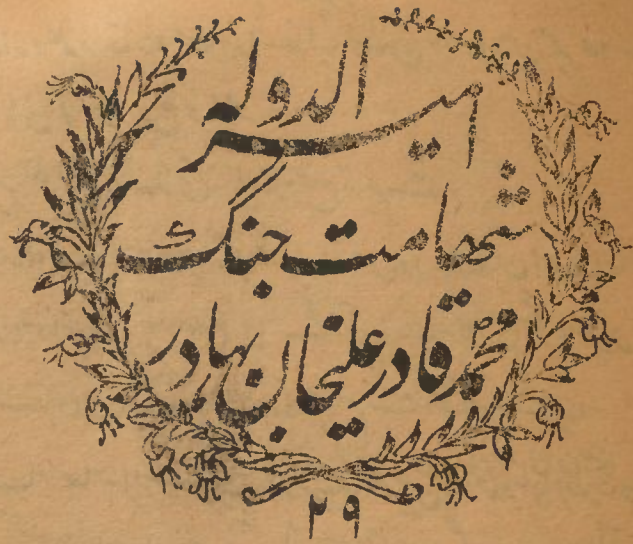 امیر الدوله
شهامت جنگ
محمد قادر علیخان بهادر
۲۹